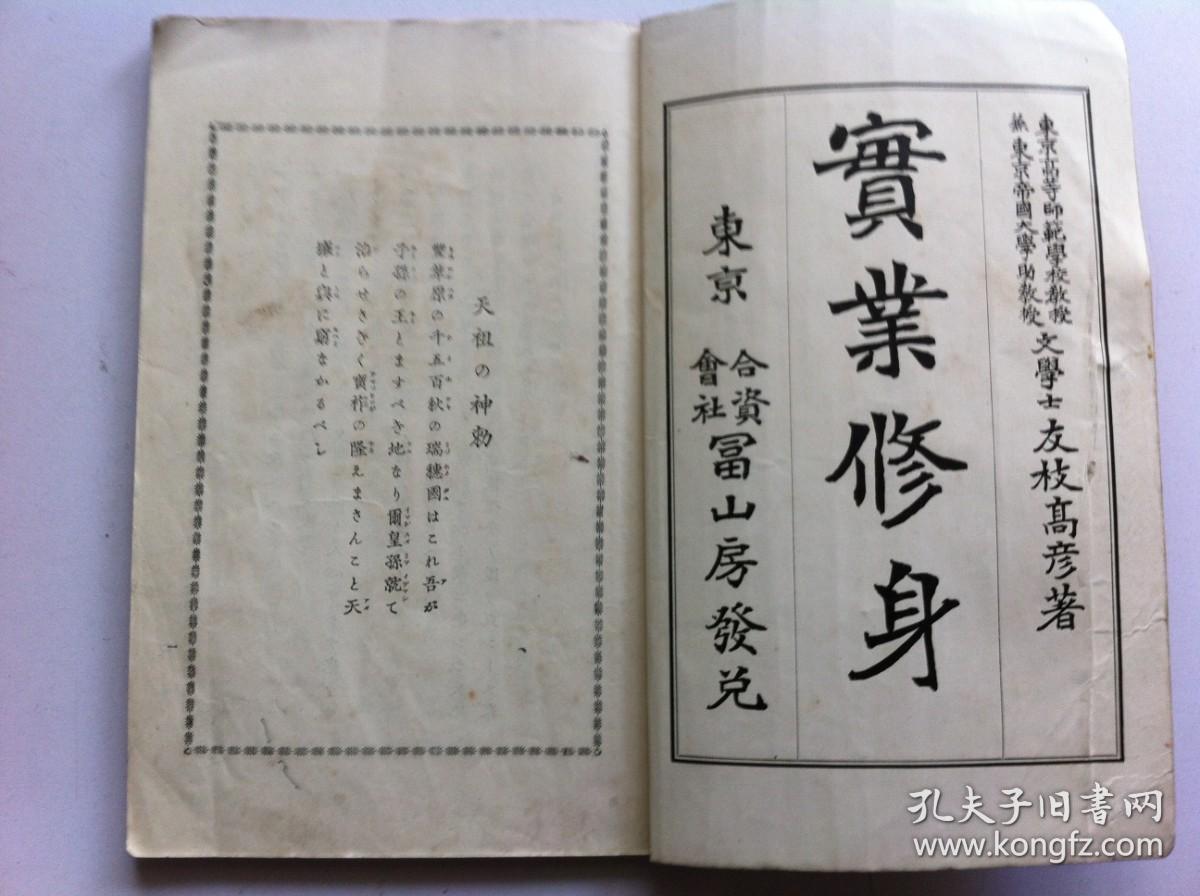 東京高等師範學校教授
兼東京帝國大學助教授
文學士友枝高彦著
實業修身
東京 合資會社 冨山房發兌
天祖の神勅
豐葦原の千五百秋の瑞穗國はこれ吾が
子孫の王とますべき地なり爾皇孫就て
治らせさきく寶祚の隆えまさんこと天
壤と與に窮なかるべし
孔夫子旧书网
www.kongfz.com